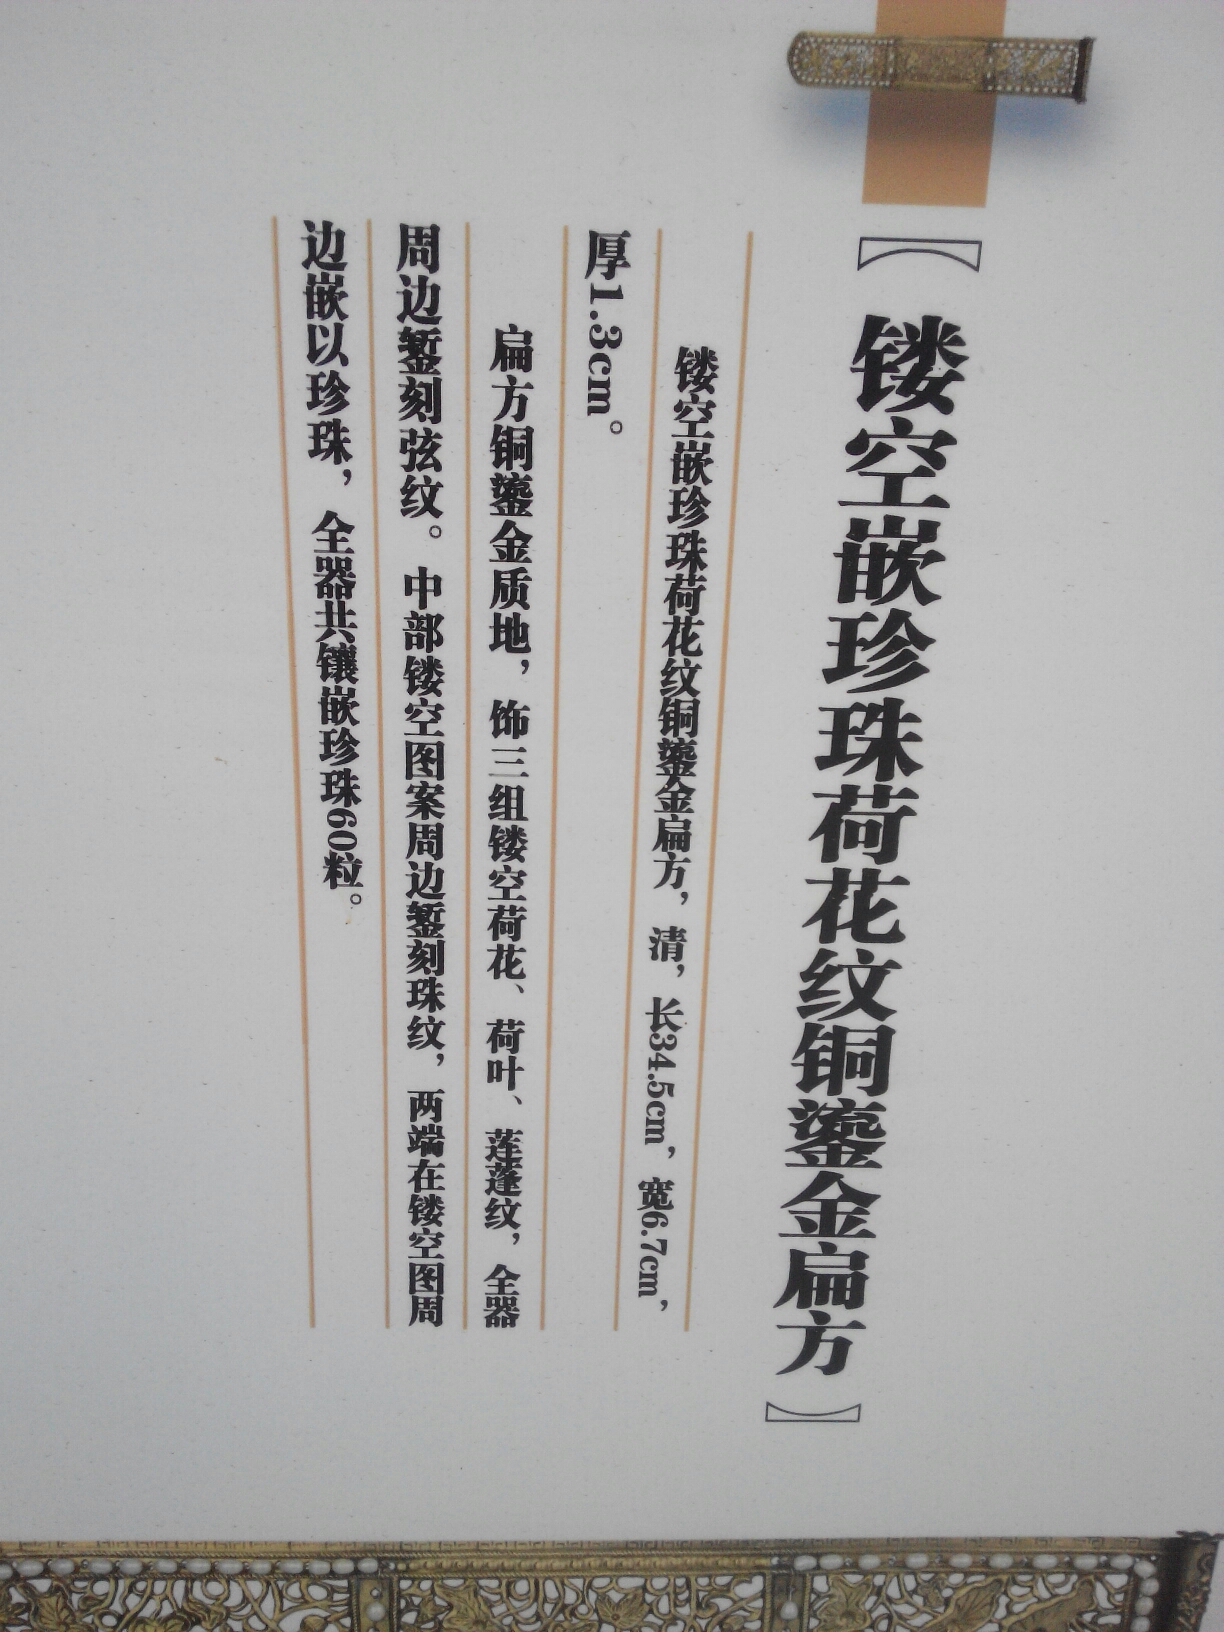 【镂空嵌珍珠荷花纹铜鎏金扁方】
镂空嵌珍珠荷花纹铜鎏金扁方，清，长34.5cm，宽6.7cm，
厚1.3cm。
扁方铜鎏金质地，饰三组镂空荷花、荷叶、莲蓬纹，全器
周边錾刻弦纹。中部镂空图案周边錾刻珠纹，两端在镂空图周
边嵌以珍珠，全器共镶嵌珍珠60粒。